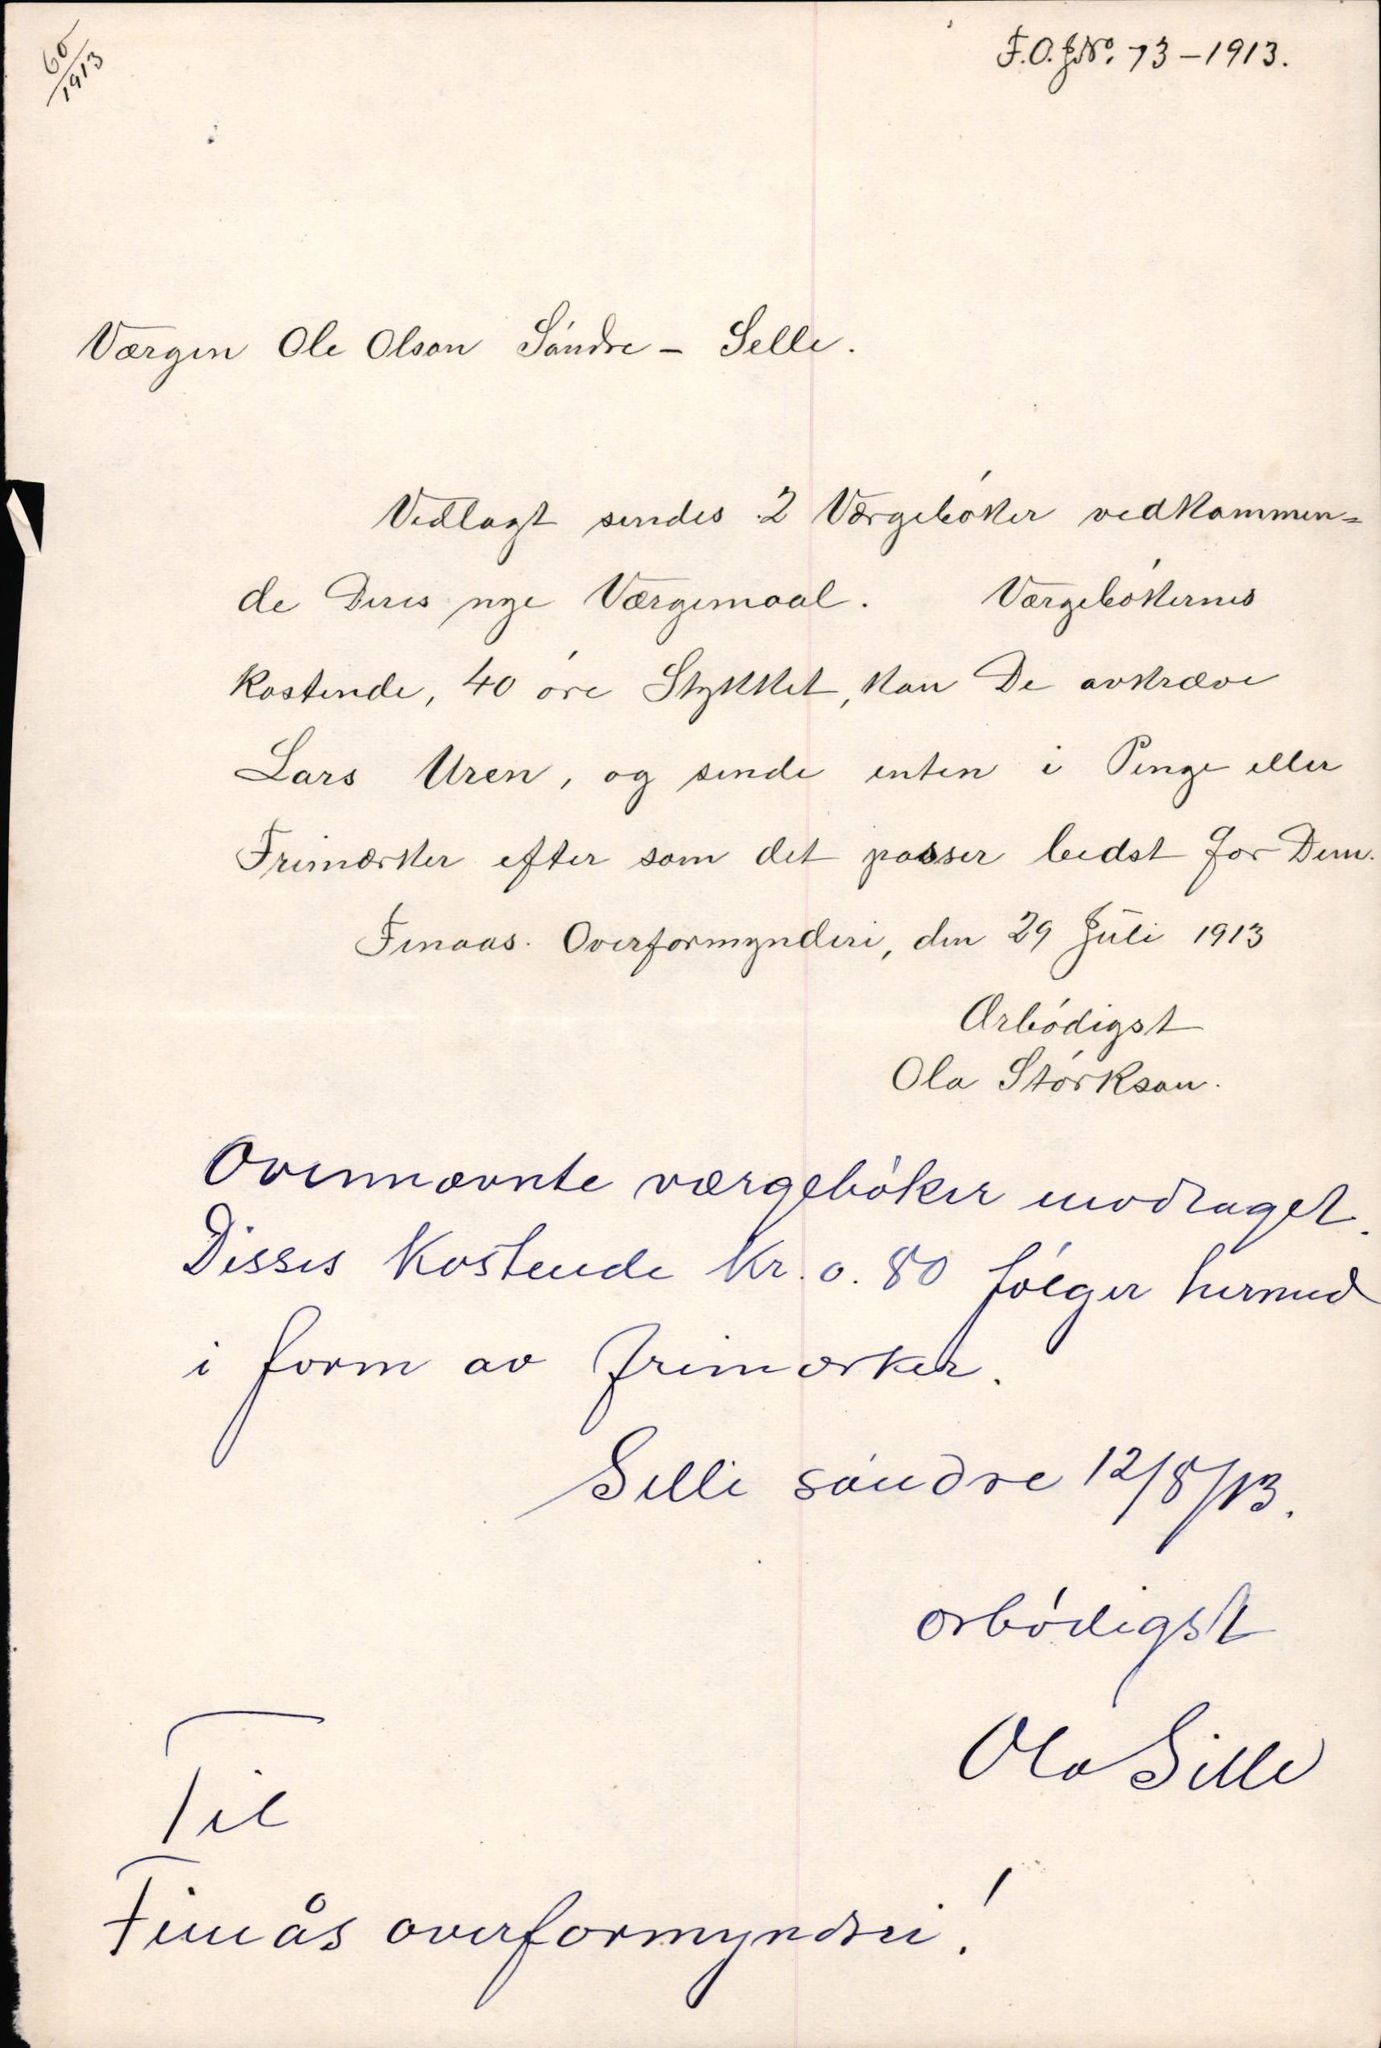 60/1913
F.O. J№. 73 - 1913.
Værgen Ole Olson Söndre - Selle.
Vedlagt sendes 2 Værgeböker vedkommen=
de Deres nye Værgemaal. Værgebökernes
kostende, 40 öre Stykket, kan De avkræve
Lars Uren, og sende enten i Penge eller
Frimærker efter som det passer bedst for Dem.
Finaas Overformynderi, den 29 Juli 1913
Ærbödigst
Ola Störkson.
Ovennævnte værgeböker modtaget.
Disses kostende kr. 0.80 fölger hermed
i form av frimærker.
Selle söndre 12/8/13.
ærbödigst
Ola Selle
Til
Finås overformynderi!